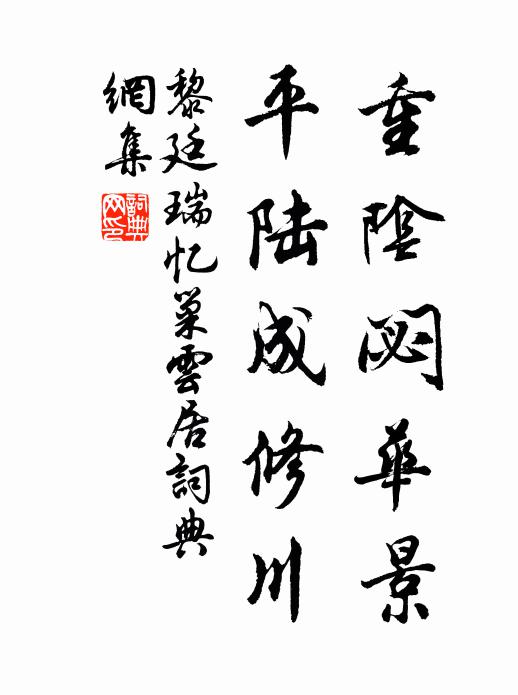 重陰閟華景
平陆成修川
黎廷瑞忆巢雲居詞典
網集
詞典
网印